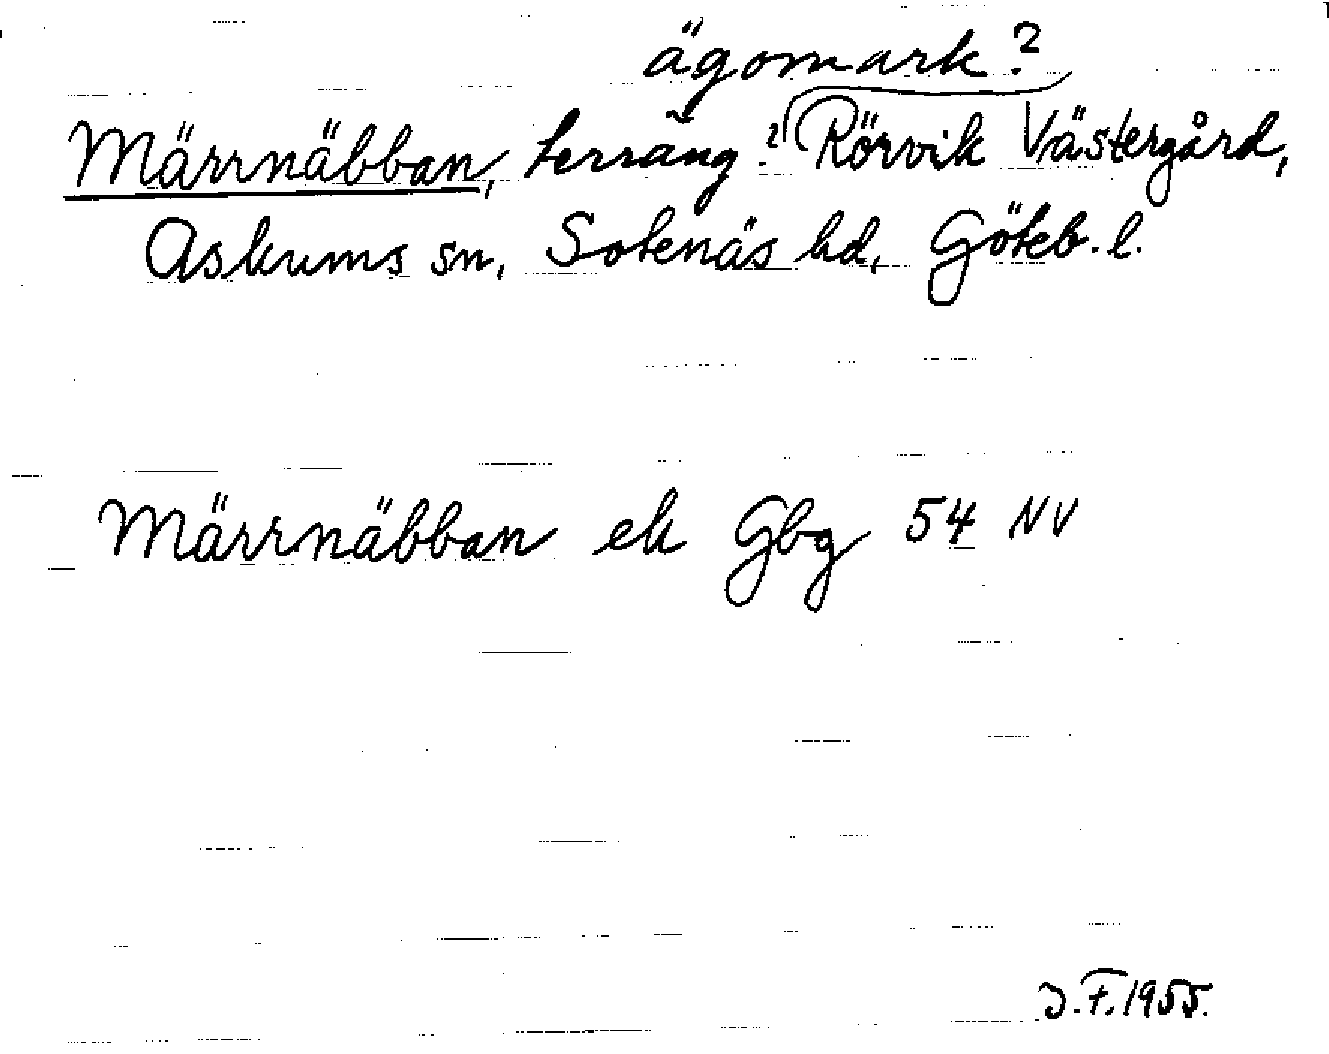 ägomark?
Märrnäbban, terräng? Rörvik Västergård,
Askums sn, Sotenäs hd, Göteb. l.
Märrnäbban ek Gbg 54 NV
J.F. 1955.